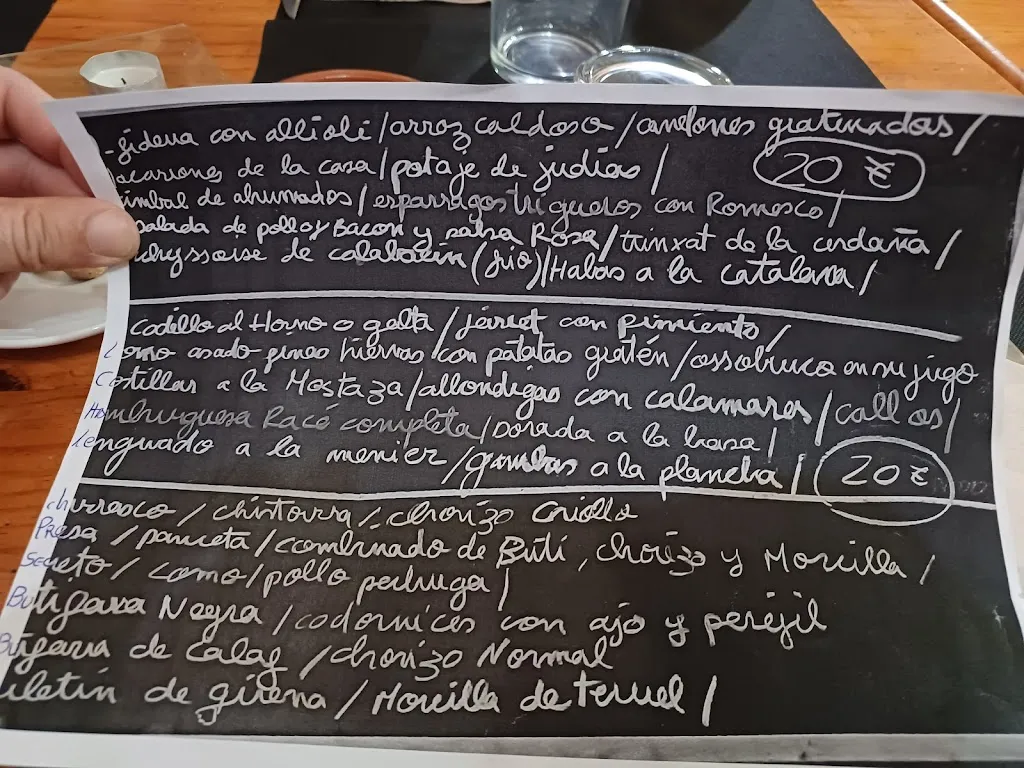 -fideua con allioli / arroz caldoso / canelones gratinados /
macarrones de la casa / potaje de judias /
20 €
timbal de ahumados / esparragos trigueros con Romesco /
salada de pollo y Bacon y salsa Rosa / trinxat de la cerdaña /
de calabacin (frio) / Habas a la catalana /
codillo al Horno o galta / jarret con pimiento /
Lomo asado finas hiervas con patatas gratén / ossobuco en su jugo
Costillas a la Mostaza / allondigas con calamares / callos /
Hamburguesa Racó completa / Dorada a la brasa /
lenguado a la menier / gambas a la plancha /
20 €
churrasco / chistorra / chorizo Criollo
Presa / panceta / combinado de Buti, chorizo y Morcilla /
Secreto / Lomo / pollo pechuga /
Butifarra Negra / codornices con ajo y perejil
Butifarra de Calaf / chorizo Normal
de girona / Morcilla de teruel /